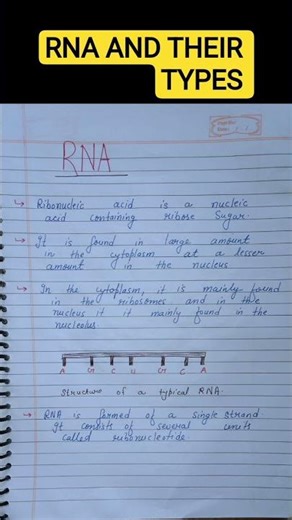 RNA AND THEIR
TYPES
RNA
Ribonucleic acid is a nucleic
acid containing ribose Sugar.
It is found in large amount
in the cytoplasm at a lesser
amount in the nucleus
In the cytoplasm, it is mainly found
in the ribosomes and in the
nucleus it it mainly found in the
nucleolus.
A G C U G C A
Structure of a typical RNA.
RNA is formed of a single strand
It consists of several units
called ribonucleotide